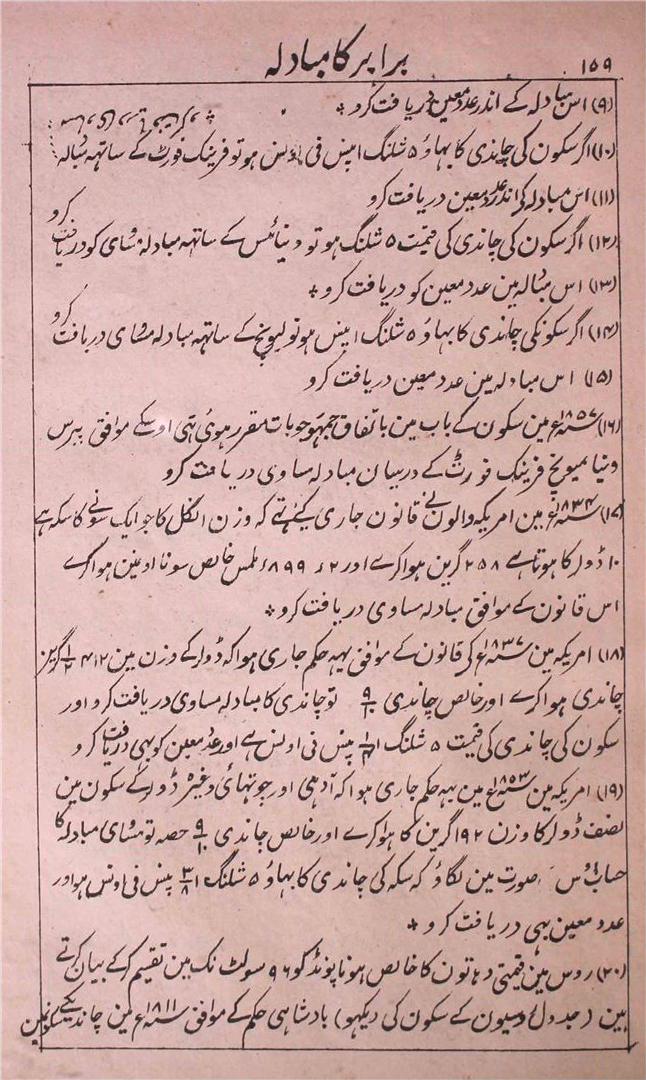 ۱۵۹
برابر کا مبادلہ
(۹) اس مبادلہ کے اندر عدد معین دریافت کرو *
(۱۰) اگر سکون کی چاندی کا بہاؤ ۵ شلنگ ا پنس فی اونس ہو تو فرینک فورٹ کے ساتھہ مبادلہ
(۱۱) اس مبادلہ کی اندر عدد معین دریافت کرو
(۱۲) اگر سکون کی چاندی کی قیمت ۵ شلنگ ہو تو وینا ئس کے ساتھہ مبادلہ مساوی کو دریافت کرو
(۱۳) اس مبادلہ مین عدد معین کو دریافت کرو *
(۱۴) اگر سکونکی چاندی کا بہاؤ ۵ شلنگ ا پنس ہو تو لیونچ کے ساتھہ مبادلہ مساوی دریافت کرو
(۱۵) اس مبادلہ مین عدد معین دریافت کرو
(۱۶) ۱۸۵۷ سنہ ع مین سکون کے باب مین باتفاق جمہور جو بات مقرر ہوئی تہی اوسکے موافق پیرس
وینا میونچ فرینک فورٹ کے درمیان مبادلہ مساوی دریافت کرو
(۱۷) ۱۸۳۴ سنہ ع مین امریکہ والون نے قانون جاری کیئے تہے کہ وزن ایگل کا جو ایک سونے کا سکہ ہے
۱۰ ڈولر کا ہوتا ہے ۲۵۸ گرین ہوا کرے اور ۲ء۸۹۹ ملمس خالص سونا اوسین ہوا کرے
اس قانون کے موافق مبادلہ مساوی دریافت کرو *
(۱۸) امریکہ مین ۱۸۳۷ سنہ ع کی قانون کے موافق یہہ حکم جاری ہوا کہ ڈولر کے وزن مین ۴۱۲ ۱/۲ گرین
چاندی ہوا کرے اور خالص چاندی ۹/۱۰ تو چاندی کا مبادلہ مساوی دریافت کرو اور
سکون کی چاندی کی قیمت ۵ شلنگ پنس فی اونس ہے اور عدد معین کو بہی دریافت کرو
(۱۹) امریکہ مین ۱۸۵۳ سنہ ع مین یہہ حکم جاری ہوا کہ آدہی اور چوتہائی وغیرہ ڈولر کے سکون مین
نصف ڈولر کا وزن ۱۹۲ گرین کا ہوا کرے اور خالص چاندی ۹/۱۰ حصہ تو مساوی مبادلہ کا
حساب اوس صورت مین لگاؤ کہ سکہ کی چاندی کا بہاؤ ۵ شلنگ ۱ ۳/۸ پنس فی اونس ہو اور
عدد معین بہی دریافت کرو *
(۲۰) روس مین قیمتی دہاتون کا خالص ہونا پونڈ کو ۹۶ سولٹ نک مین تقسیم کر کے بیان کرتے
ہین (جدول روسیون کے سکون کی دیکہو) بادشاہی حکم کے موافق ۱۸۱۱ سنہ ع مین چاندیکے سکونمین